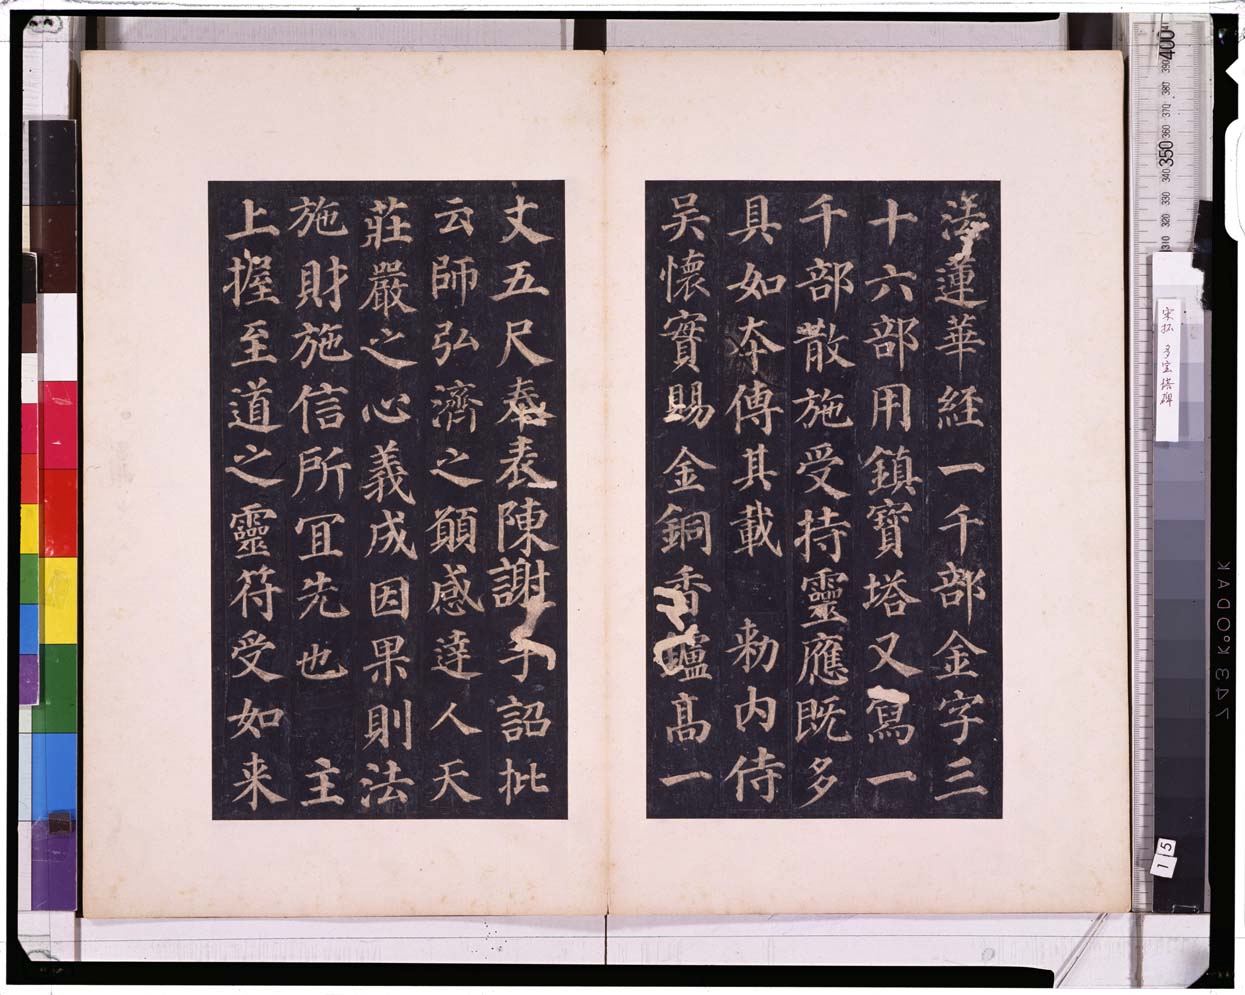 法蓮華経一千部金字三
十六部用鎮寶塔又寫一
千部散施受持靈應既多
具如本傳其載 勅内侍
吴懷實賜金銅香爐髙一
丈五尺奉表陳謝手詔批
云師弘濟之願感達人天
莊嚴之心義成因果則法
施財施信所冝先也 主
上握至道之靈符受如来
宋拓 多宝塔碑
400
390
380
370
360
350
340
330
320
310
15
KODAK